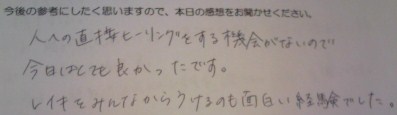 今後の参考にしたく思いますので、本日の感想をお聞かせください。
人への直接ヒーリングをする機会がないので
今日はとても良かったです。
レイキをみんなからうけるのも面白い経験でした。